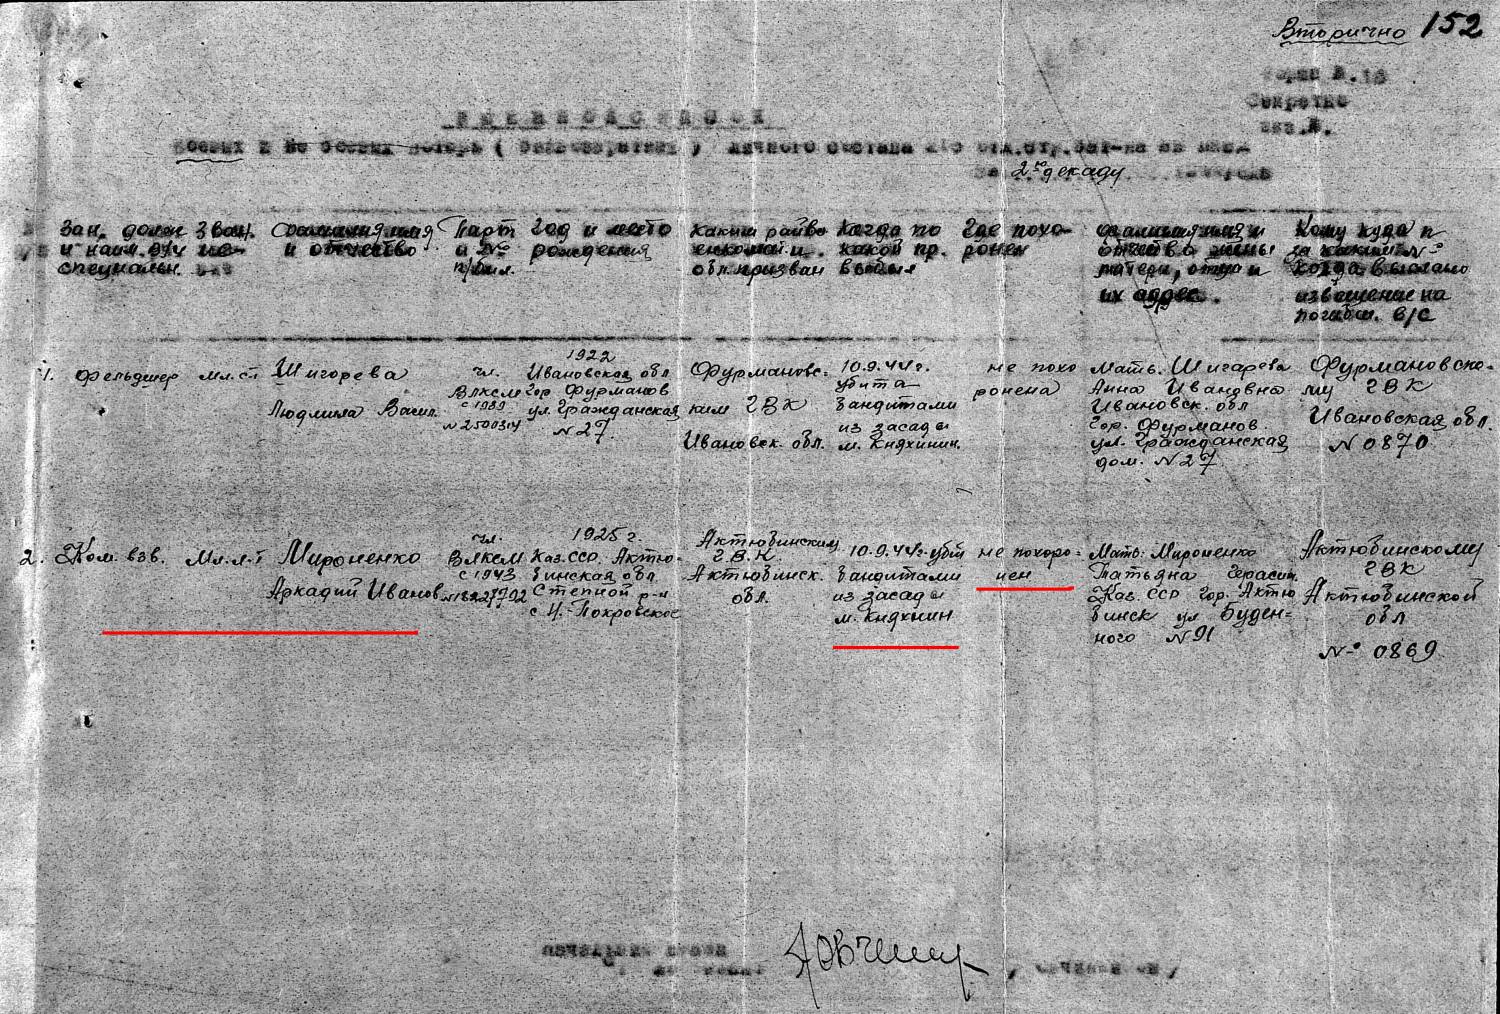 Вторично 152
Форма №.10
Секретно
экз.№.
боевых и не боевых потерь ( безвозвратных ) личного состава
2ю декаду
Зан. долж Зван. фамилия имя Парт Год и место Каким райво Когда по Где похо- фамилия имя и Кому куда и
и наим. в/уч ие и отчество и № рождения енкомат и какой пр. ронен отчество жены за каким №
специальн. п/бил. обл. призван выбыл матери, отца и когда выслано
их адрес. извещение на
погибш. в/с
1. Фельдшер мл.с-т Шигорева
Людмила Васил.
чл. ВЛКСМ с 1939 № 2500314
1922
Ивановская обл
гор Фурманов
ул. Гражданская
№ 27.
Фурмановс-
ким ГВК
Ивановск. обл.
10.9.44г.
убита
бандитами
из засады
м. Княхинин.
не похо
ронена
Мать. Шигарева
Анна Ивановна
Ивановск. обл
гор. Фурманов.
ул. Гражданская
дом. № 27
Фурмановско-
му ГВК
Ивановская обл.
№ 0870
2. Ком. взв. Мл. л-т Мироненко
Аркадий Иванов
чл.
ВЛКСМ
с 1943
1925 г.
Каз.ССР. Актю-
бинская обл.
Степной р-н
с Н.-Покровское
Актюбинским
Г.В.К.
Актюбинск.
обл.
10.9.44г. убит
бандитами
из засады
м. Княхнин
не похоро-
нен
Мать: Мироненко
Татьяна Герасим.
Каз. ССР гор. Актю
бинск ул Буден-
ного № 91
Актюбинскому
ГВК
Актюбинской
обл
№ 0869